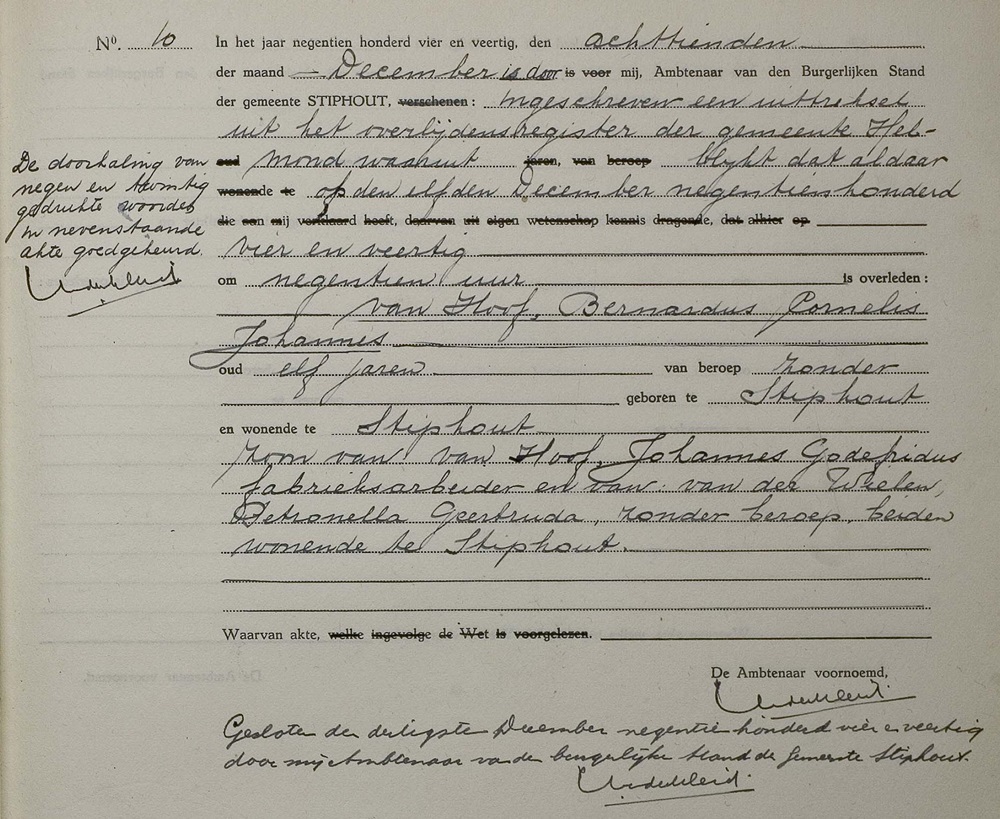 No. 10 In het jaar negentien honderd vier en veertig, den achttienden
der maand December is door is voor mij, Ambtenaar van den Burgerlijken Stand
der gemeente STIPHOUT, verschenen: ingeschreven een uittreksel
uit het overlijdensregister der gemeente Hel-
oud mond waaruit jaren, van beroep blijkt dat aldaar
wonende te op den elfden December negentienhonderd
die aan mij verklaard heeft, daarvan uit eigen wetenschap kennis dragende, dat alhier op
vier en veertig
om negentien uur is overleden:
van Hoof, Bernardus Cornelis
Johannes
oud elf jaren van beroep zonder
geboren te Stiphout
en wonende te Stiphout
zoon van van Hoof, Johannes Godefridus
fabrieksarbeider en van van der Weelen,
Petronella Geertruda, zonder beroep, beiden
wonende te Stiphout.
Waarvan akte, welke ingevolge de Wet is voorgelezen.
De Ambtenaar voornoemd,
De doorhaling van
negen en twintig
gedrukte woorden
in nevenstaande
akte goedgekeurd.
Gesloten den dertigste December negentien honderd vier en veertig
door mij Ambtenaar van den burgerlijke stand der Gemeente Stiphout.